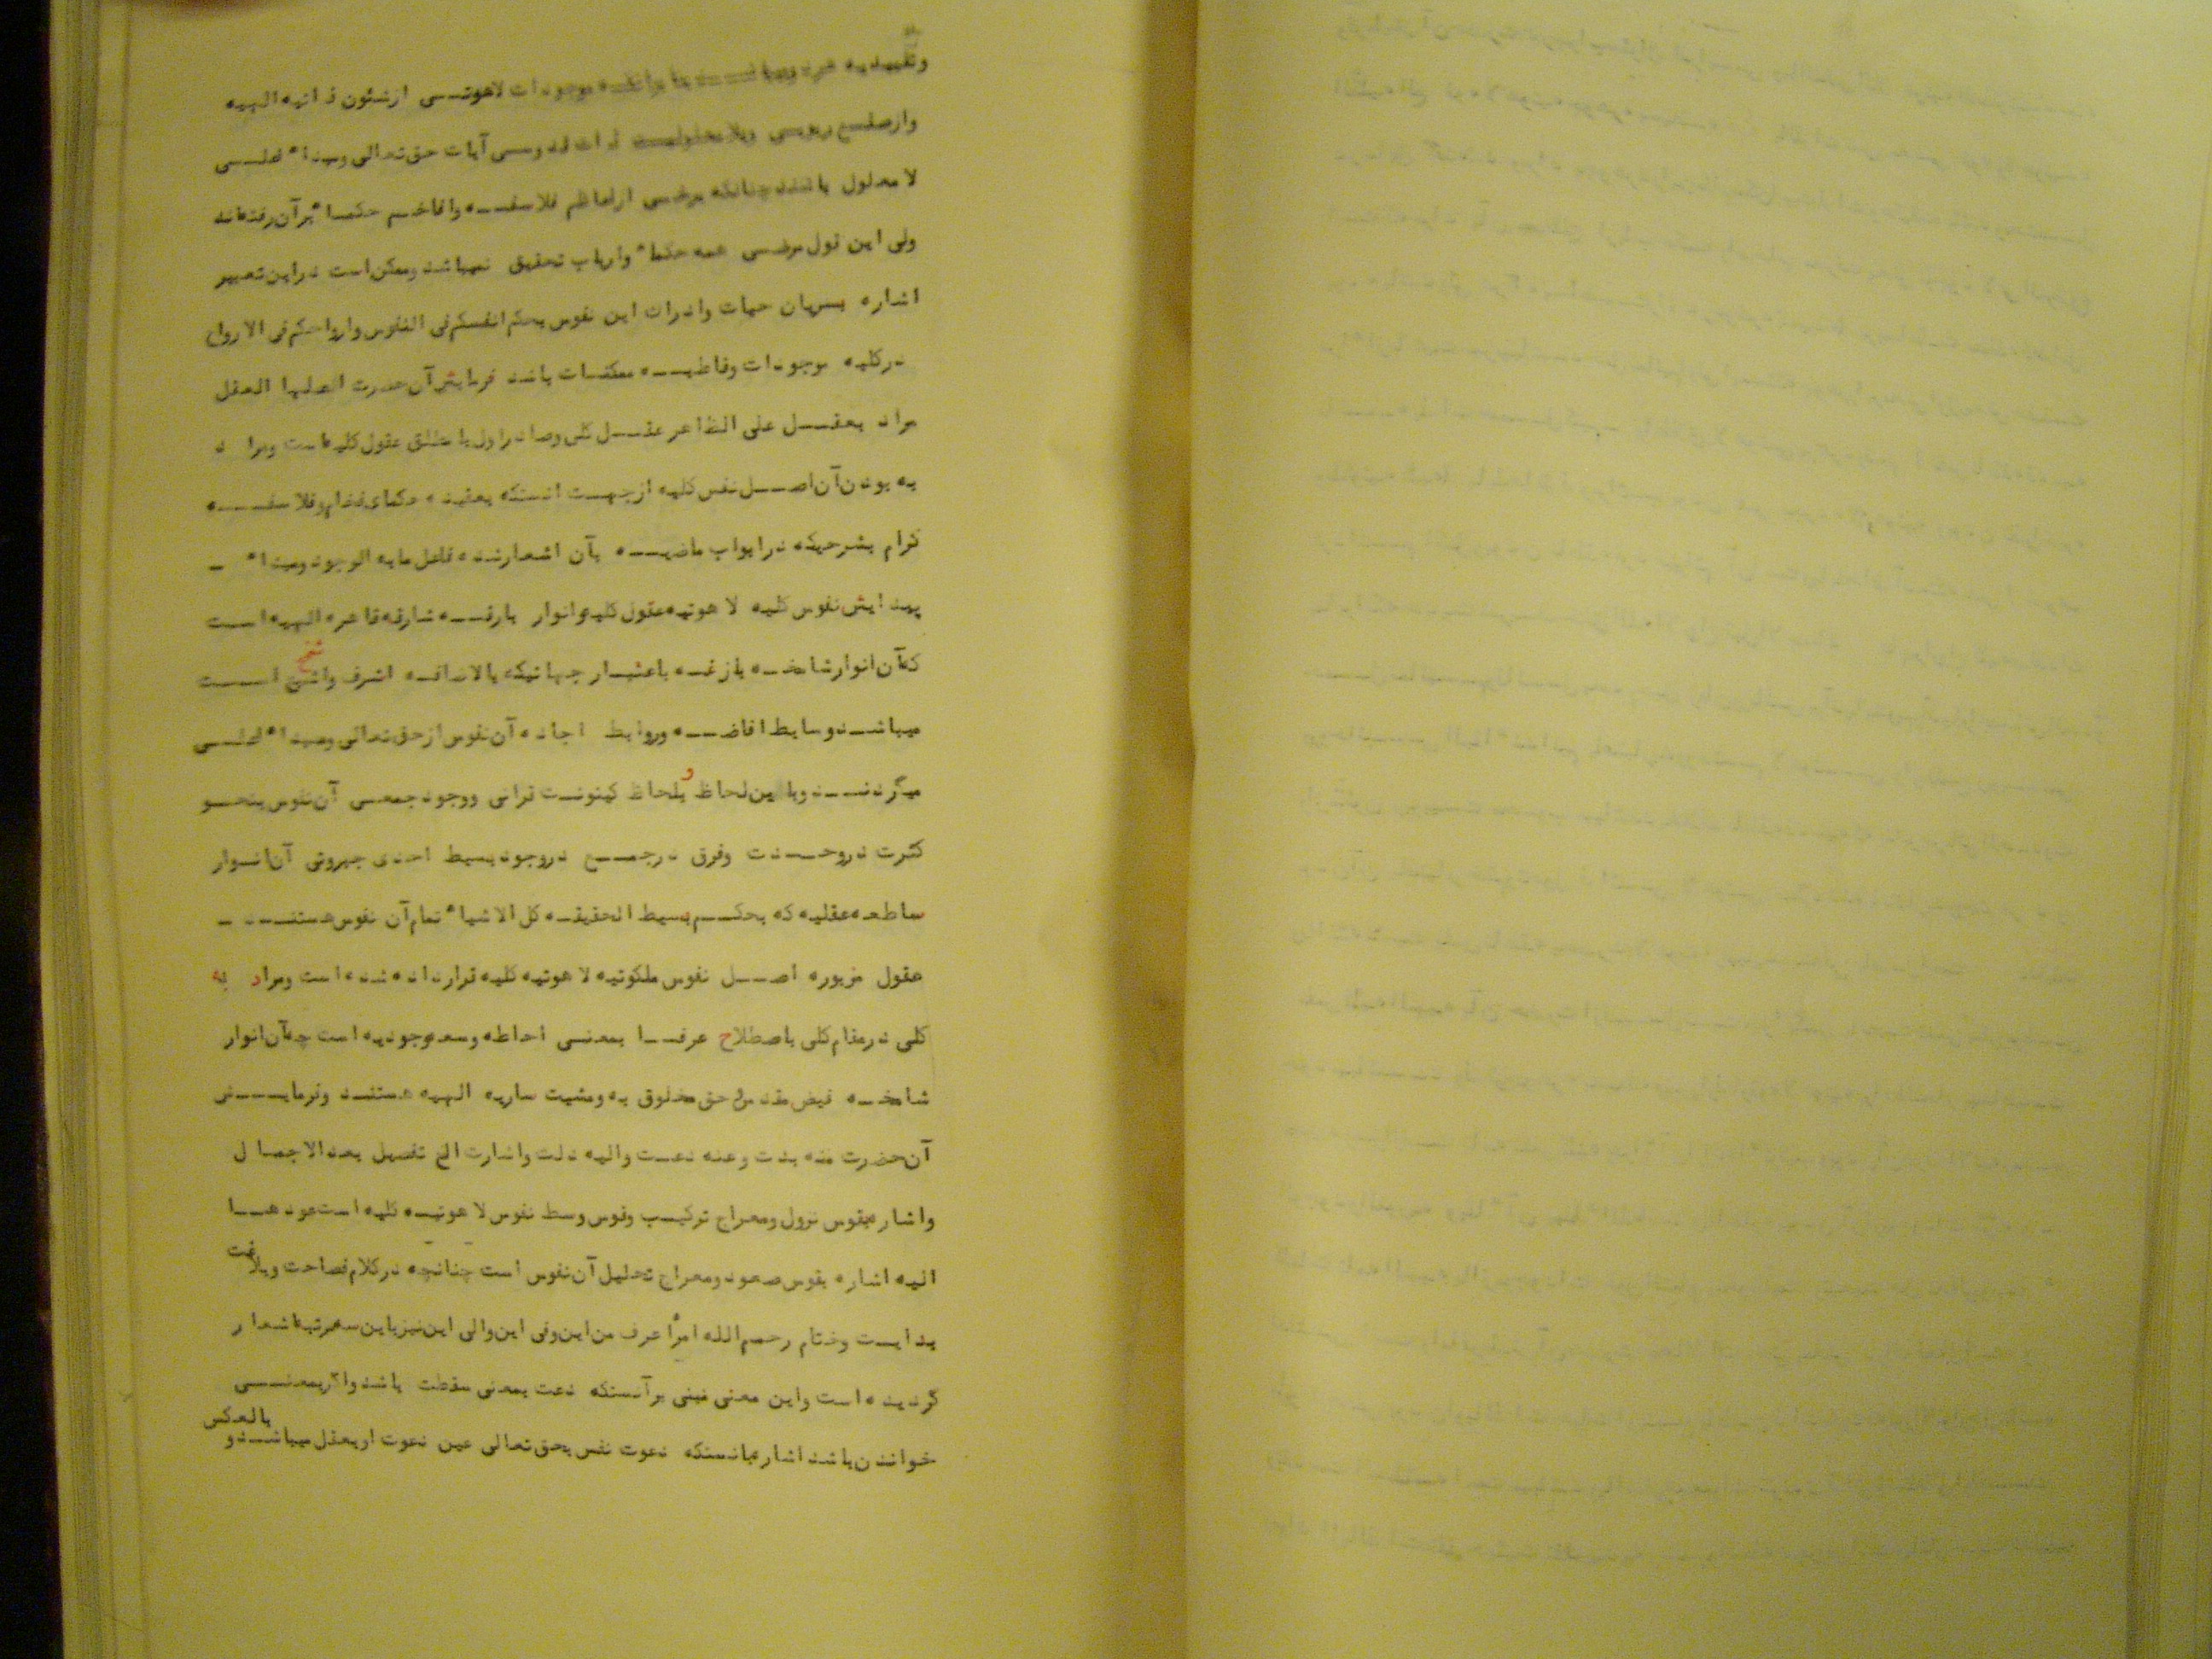 موجودات لاهوتی از شئون ذاتیه الهیه
و از صقع ربوبی ذات قدوسی آیات حق تعالی و مبداء فعلی
لا معلول باشند چنانکه مرضی از اعاظم فلاسفه و افاخم حکماء بر آن رفته‌اند
ولی این قول مرضی همه حکماء و ارباب تحقیق نمیباشد و ممکن است در این تعبیر
اشاره بسریان حیات و ادراک این نفوس بحکم انفسکم فی النفوس و ارواحکم فی الارواح
در کلیه موجودات و قاطبه ممکنات باشد فرمایش آن حضرت اصلها العقل
مراد بعقل علی الظاهر عقل کلی و صادر اول یا مطلق عقول کلیه است و مراد
به بودن آن اصل نفس کلیه از جهت انستکه بعقیده حکمای فخام و فلاسفه
کرام بشرحیکه در ابواب ماضیه بآن اشعار شده فاعل ما به الوجود و مبداء -
پیدایش نفوس کلیه لاهوتیه عقول کلیه و انوار بارقه شارقه قاهره الهیه است
که آن انوار شامخه بازغه باعتبار جهاتیکه بالاضافه اشرف و اشمخ است
میباشند وسایط افاضه و روابط اجاده آن نفوس از حق تعالی و مبداء فعلی
میگردند و باین لحاظ و بلحاظ کینونت قرانی و وجود جمعی آن نفوس بنحو
کثرت در وحدت و فرق در جمع در وجود بسیط احدی جبروتی آن انوار
ساطعه عقلیه که بحکم بسیط الحقیقه کل الاشیاء تمام آن نفوس هستند -
عقول مزبوره اصل نفوس ملکوتیه لاهوتیه کلیه قرار داده شده است و مراد به
کلی در مقام کلی باصطلاح عرفا بمعنی احاطه و سعه وجودیه است چه آن انوار
شامخه فیض مقدس و حق مخلوق به و مشیت ساریه الهیه هستند و فرمایش
آن حضرت منه بدت و عنه دعت و الیه دلت و اشارت الخ تفصیل بعد الاجمال
و اشاره بقوس نزول و معراج ترکیب و قوس وسط نفوس لاهوتیه کلیه است عودها
الیه اشاره بقوس صعود و معراج تحلیل آن نفوس است چنانچه در کلام فصاحت و بلاغت
بدایت و ختام رحم الله امرأ عرف من این و فی این و الی این نیز باین سه مرتبه اشعار
گردیده است و این معنی مبنی بر آنستکه دعت بمعنی سقطت باشد و اگر بمعنی
خواندن باشد اشاره بانستکه دعوت نفس بحق تعالی عین دعوت او بعقل میباشد و بالعکس